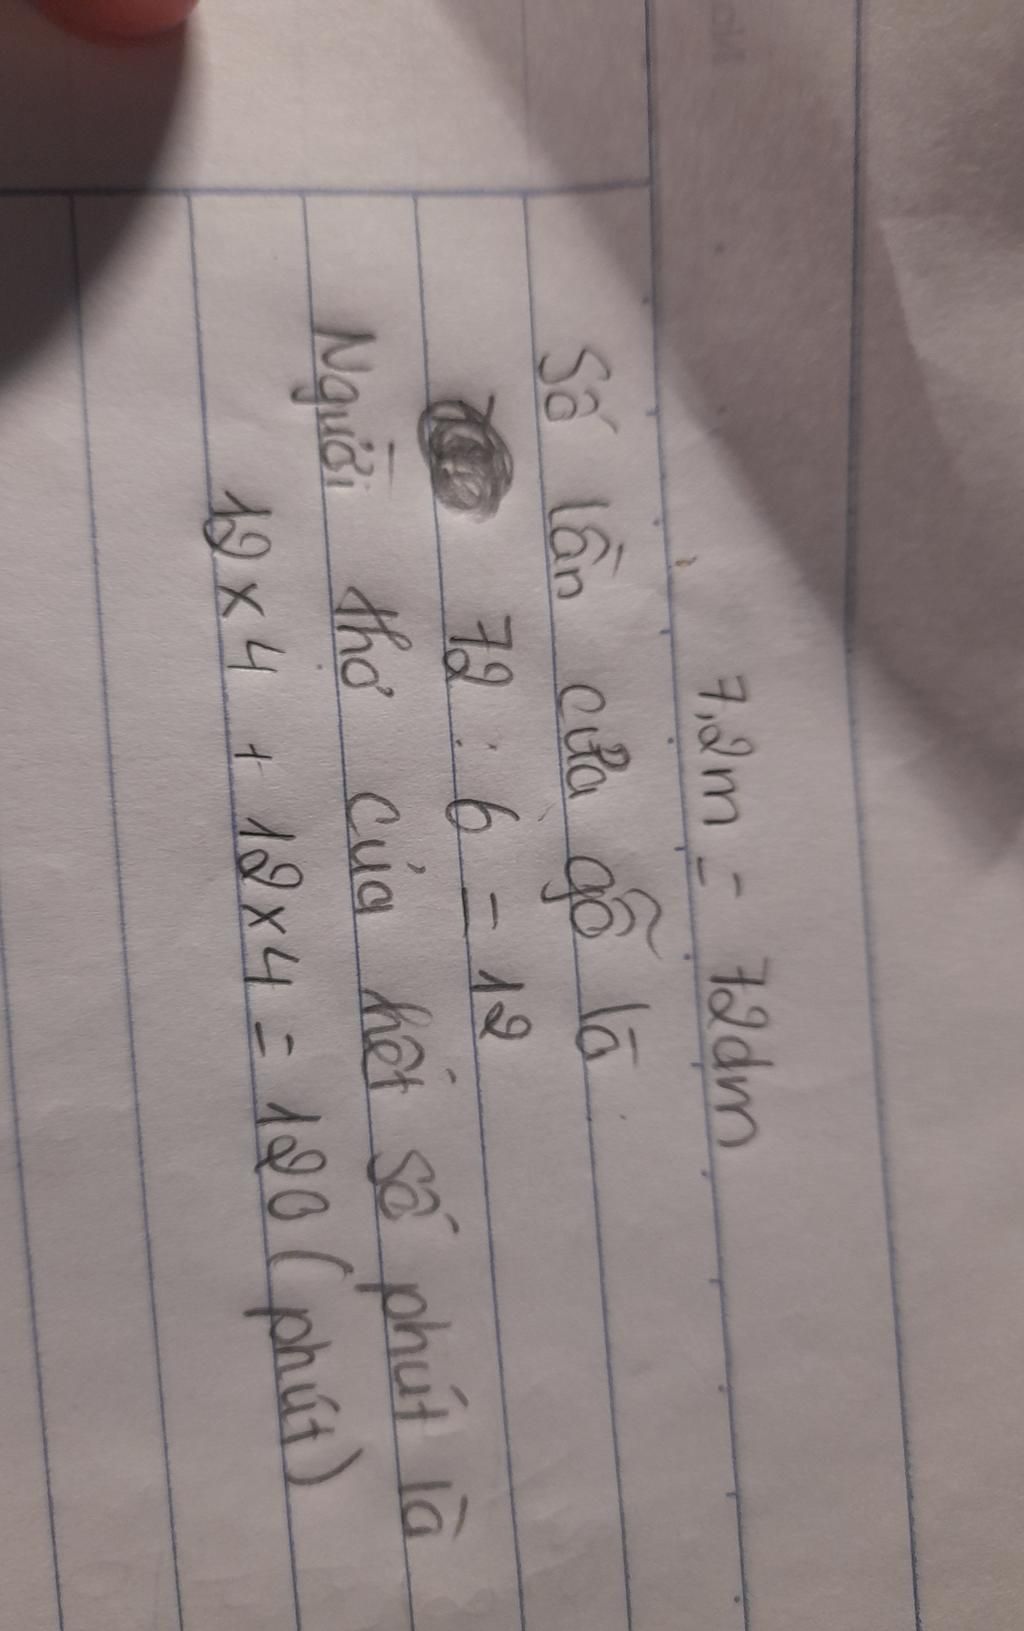 7,2m = 72dm
Số lần cưa gỗ là
72 : 6 = 12
Người thợ cưa hết số phút là
12 x 4 + 12 x 4 = 120 (phút)